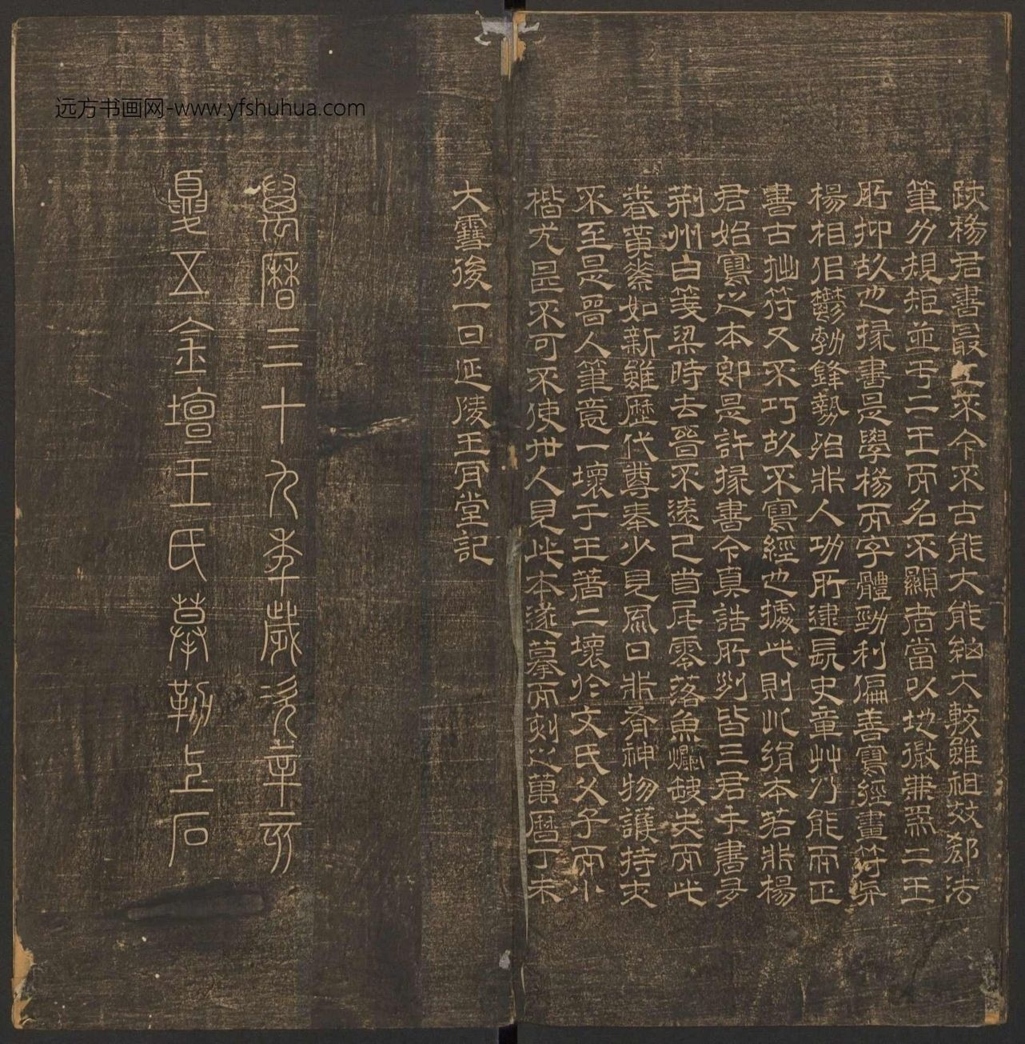 跡楊君書最工不今不古能大能細大較雖祖效郄法
筆力規矩並于二王而名不顯者當以地微兼爲二王
所抑故也掾書是學楊而字體勁利偏善寫經畫符與
楊相佀鬱勃鋒勢殆非人功所逮長史章艸乃能而正
書古拙符又不巧故不寫經也據此則此絹本若非楊
君始寫之本卽是許掾書今真誥所列皆三君手書多
荊州白箋梁時去晉不遠已首尾零落魚爛缺失而此
卷黃素如新雖歷代尊奉少見風日非有神物護持夫
不至是晉人筆意一壞于王著二壞於文氏父子而小
楷尤甚不可不使世人見此本遂摹而刻之萬曆丁未
大雪後一日延陵王肯堂記
萬曆三十九年歲次辛亥
夏五金壇王氏摹勒上石
远方书画网-www.yfshuhua.com